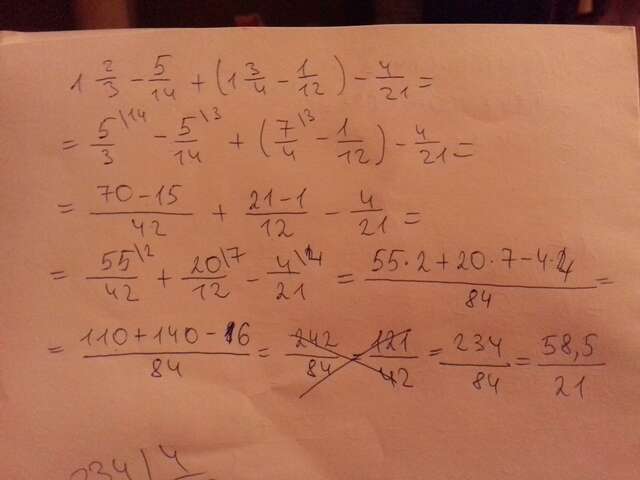 1 2/3 - 5/14 + (1 3/4 - 1/12) - 4/21 =
= 5/3 \14 - 5/14 \3 + (7/4 \3 - 1/12) - 4/21 =
= 70-15/42 + 21-1/12 - 4/21 =
= 55/42 \2 + 20/12 \7 - 4/21 \4 = 55·2+20·7-4·4/84 =
= 110+140-16/84 = 242/84 = 121/42 = 234/84 = 58,5/21
234/4